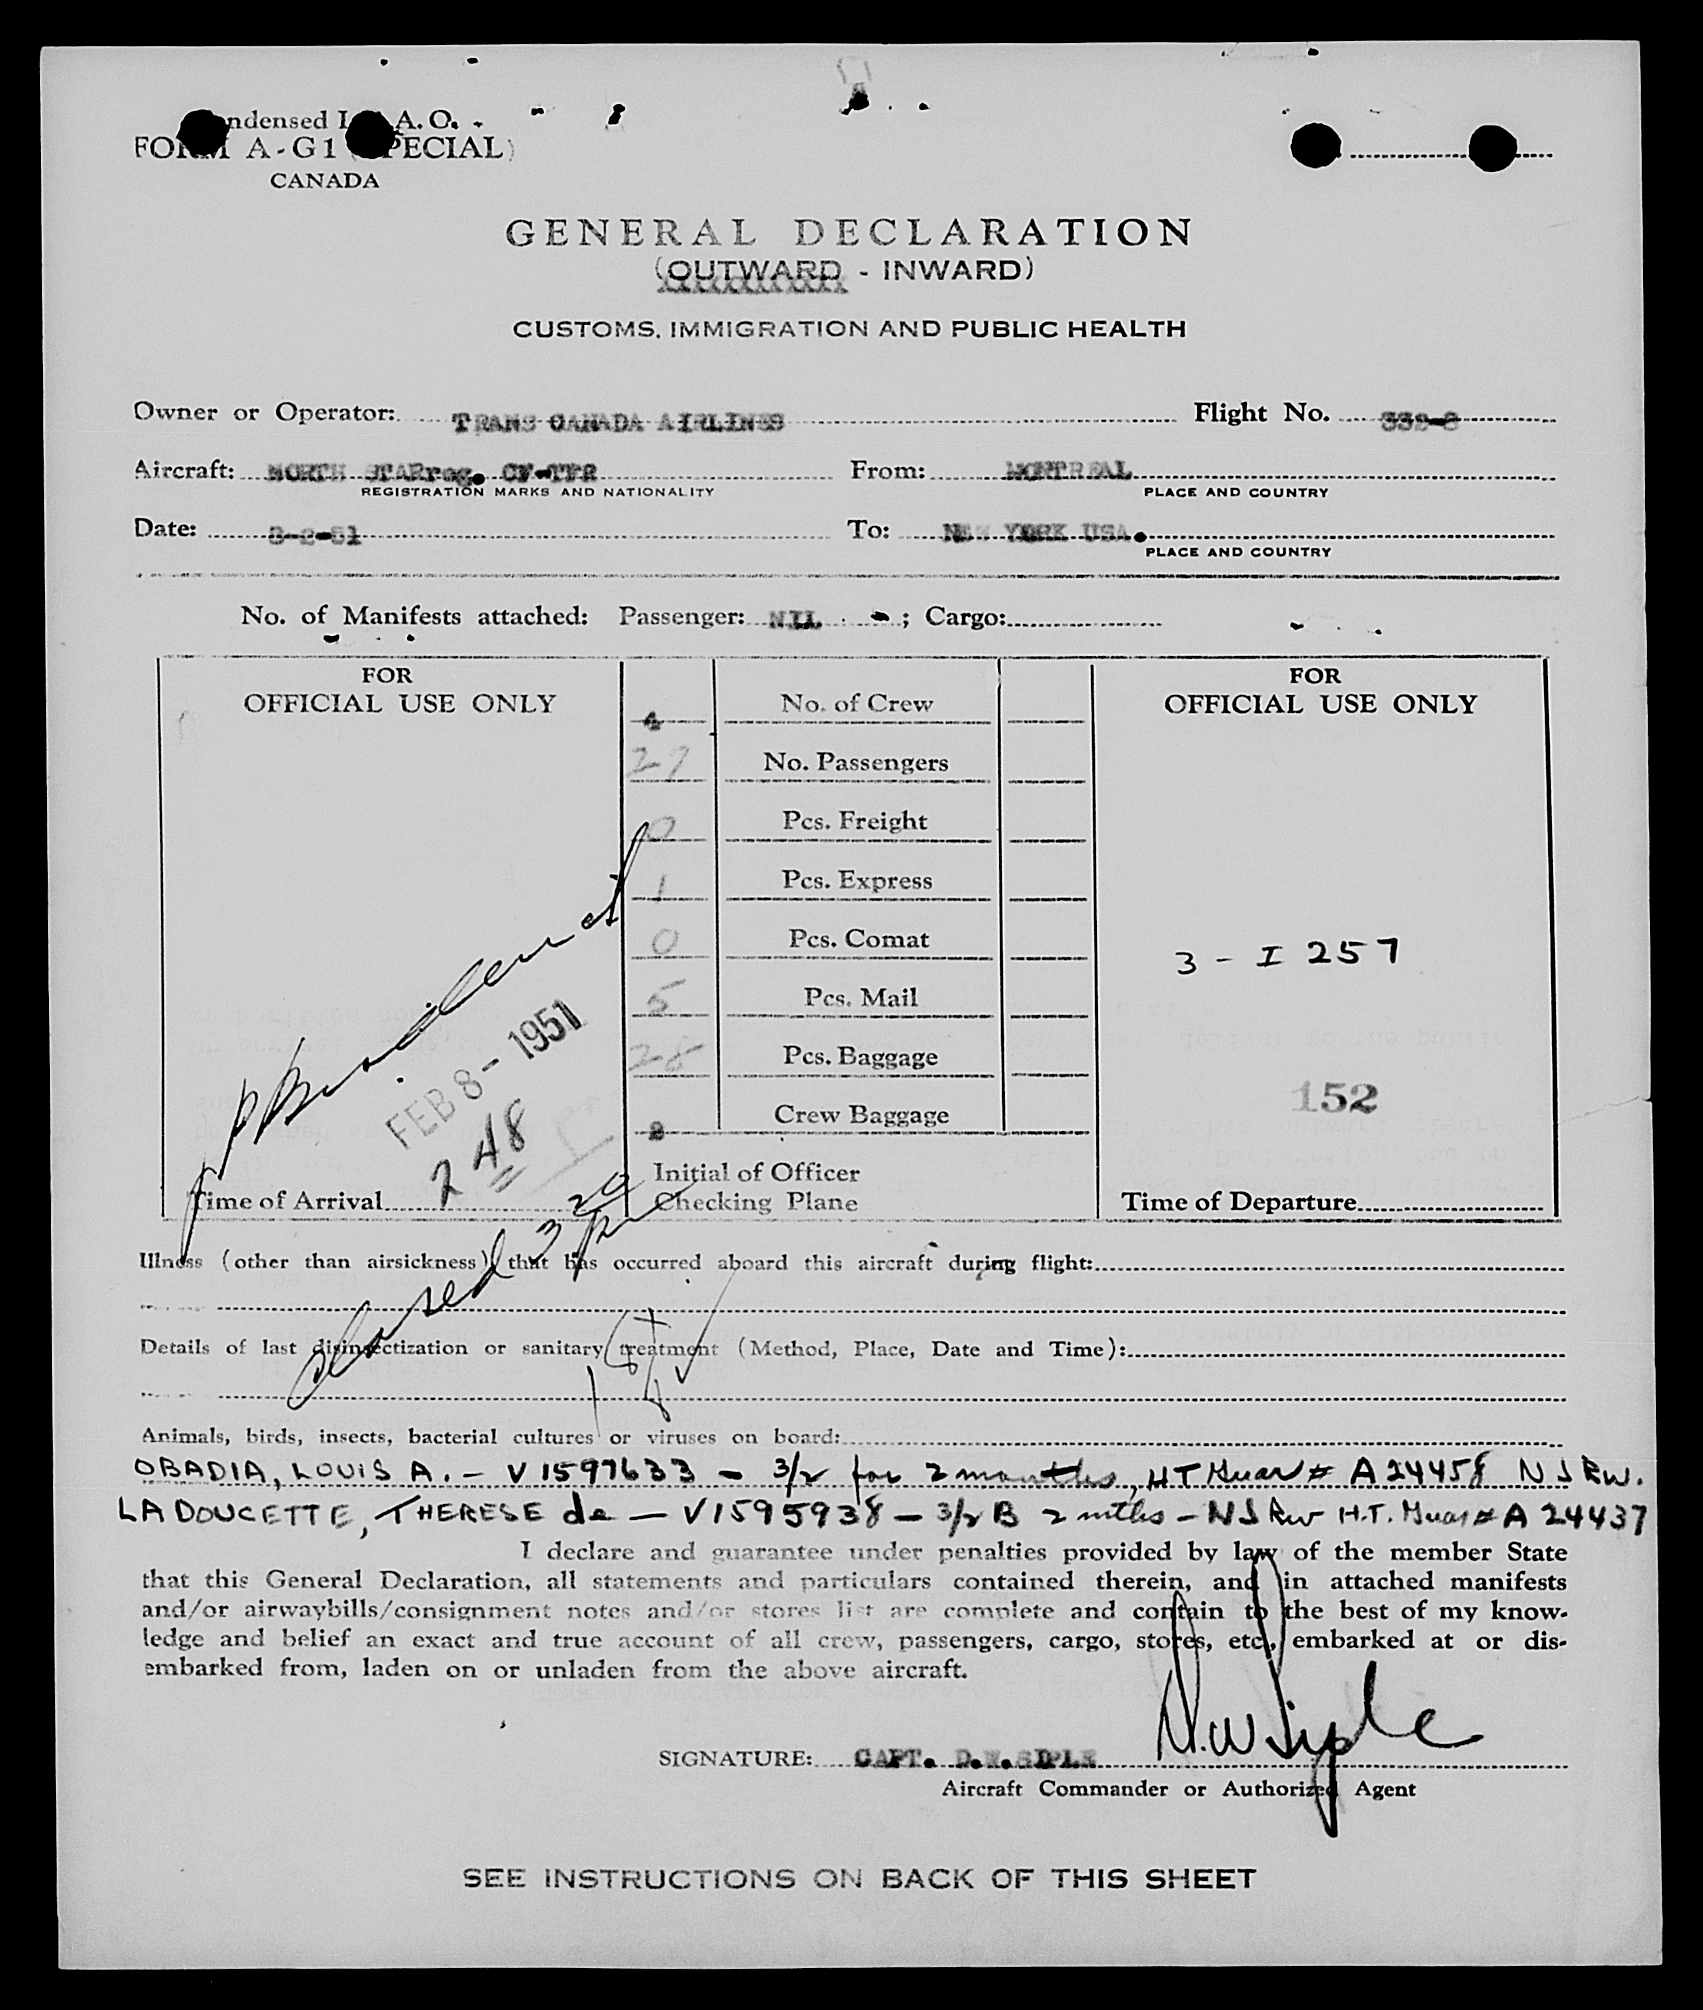 Condensed I.C.A.O.
FORM A-G1 (SPECIAL)
CANADA
GENERAL DECLARATION
(OUTWARD - INWARD)
CUSTOMS, IMMIGRATION AND PUBLIC HEALTH
Owner or Operator: TRANS CANADA AIRLINES Flight No. 332-8
Aircraft: NORTH STAR reg. CF-TFR From: MONTREAL
REGISTRATION MARKS AND NATIONALITY PLACE AND COUNTRY
Date: 8-2-51 To: NEW YORK USA.
PLACE AND COUNTRY
No. of Manifests attached: Passenger: NIL ; Cargo:
FOR
OFFICIAL USE ONLY
4 No. of Crew
27 No. Passengers
0 Pcs. Freight
1 Pcs. Express
0 Pcs. Comat
5 Pcs. Mail
28 Pcs. Baggage
Crew Baggage
FOR
OFFICIAL USE ONLY
3 - I 257
152
FEB 8 - 1951
2 48
Time of Arrival
Initial of Officer
Checking Plane
Time of Departure
closed 3 20 pm
Illness (other than airsickness) that has occurred aboard this aircraft during flight:
Details of last disinsectization or sanitary treatment (Method, Place, Date and Time):
Animals, birds, insects, bacterial cultures or viruses on board:
OBADIA, LOUIS A. - V1597633 - 3/2 for 2 months, HT Guar # A24458 NJ RW.
LADOUCETTE, THERESE de - V1595938 - 3/2 B 2 mths - NJ Rw H.T. Guar # A 24437
I declare and guarantee under penalties provided by law of the member State
that this General Declaration, all statements and particulars contained therein, and in attached manifests
and/or airwaybills/consignment notes and/or stores list are complete and contain to the best of my know-
ledge and belief an exact and true account of all crew, passengers, cargo, stores, etc., embarked at or dis-
embarked from, laden on or unladen from the above aircraft.
SIGNATURE: CAPT. D.W. SIPLE D.W Siple
Aircraft Commander or Authorized Agent
SEE INSTRUCTIONS ON BACK OF THIS SHEET